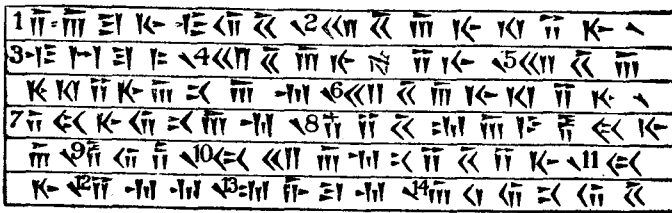 1 𐎭𐎠𐎼𐎹𐎺𐎢𐏁 𐏐2 𐎧𐏁𐎠𐎹𐎰𐎡𐎹 𐏐
3 𐎺𐏀𐎼𐎣 𐏐4 𐎧𐏁𐎠𐎹𐎰𐎡𐎹 𐏐5 𐎧𐏁𐎠
𐎹𐎰𐎡𐎹𐎠𐎴𐎠𐎶 𐏐6 𐎧𐏁𐎠𐎹𐎰𐎡𐎹 𐏐
7 𐎭𐏃𐎹𐎢𐎴𐎠𐎶 𐏐8 𐎻𐎡𐏁𐎫𐎠𐎿𐎱𐏃𐎹
𐎠 𐏐9 𐎱𐎢𐏂 𐏐10 𐏃𐎧𐎠𐎶𐎴𐎡𐏁𐎡𐎹 𐏐11 𐏃
𐎹 𐏐12 𐎡𐎶𐎶 𐏐13 𐎫𐎨𐎼𐎶 𐏐14 𐎠𐎤𐎢𐎴𐎢𐏁